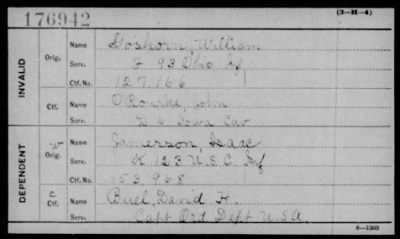 176942
(3-H-4)
INVALID
Orig.
Name Goshorn, William
Serv. F 93 Ohio Inf
Ctf. No. 127,166
Ctf.
Name O'Rourke, John
Serv. D 6 Iowa Cav
DEPENDENT
Orig.
Name Jamerson, Isaac
Serv. K 123 U.S.C. Inf
Ctf. No. 153,968
Ctf.
Name Buel, David H.
Serv. Capt Ord Dept U.S.A.